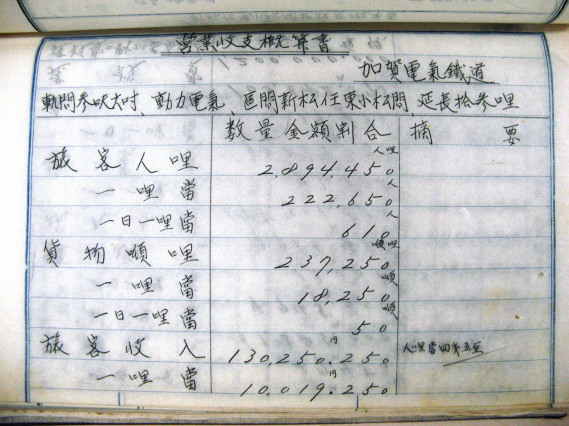 營業收支概算書
加賀電氣鐵道
軌間参呎六吋、動力電氣、區間新松任東小松間、延長拾参哩
数量金額割合 摘要
旅客人哩 2,894,450人哩
一哩當 222,650人
一日一哩當 610人
貨物噸哩 237,250噸哩
一哩當 18,250噸
一日一哩當 50噸
旅客收入 130,250.250円 人哩當四銭五厘
一哩當 10,019.250円